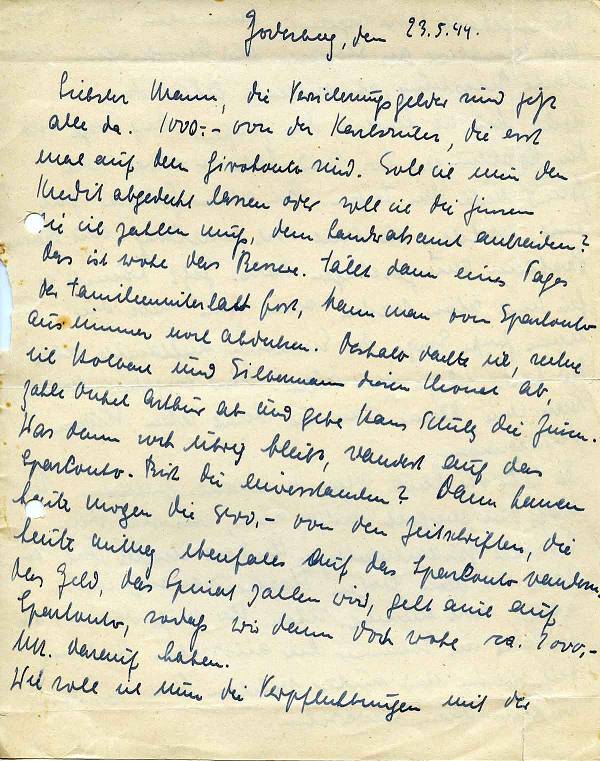 Godesberg, den 23.5.44.
Liebster Mann, die Versicherungsgelder sind jetzt
alle da. 1000,- von der Karlsruher, die erst
mal auf dem Girokonto sind. Soll ich nun den
Kredit abgedeckt lassen oder soll ich die Zinsen
die ich zahlen muß, dem Landratsamt aufreiden?
Das ist wohl das Bessere. Fällt dann eines Tages
der Familienunterhalt fort, kann man vom Sparkonto
aus immer noch abdecken. Deshalb dachte ich, rechne
ich und Silbermann diesen Monat ab,
zahle Onkel Arthur ab und gebe Hans Schulz die Zinsen.
Was dann noch übrig bleibt, wandert auf das
Sparkonto. Bist du einverstanden? Dann kamen
heute Morgen die von den Zeitschriften, die
heute mittag ebenfalls auf das Sparkonto wandern.
Das Geld, das zahlen wird, geht auch auf
Sparkonto, sodaß wir dann doch wohl ca. 7000,-
Mk. darauf haben.
Wie soll ich nun die Verpflichtungen mit der